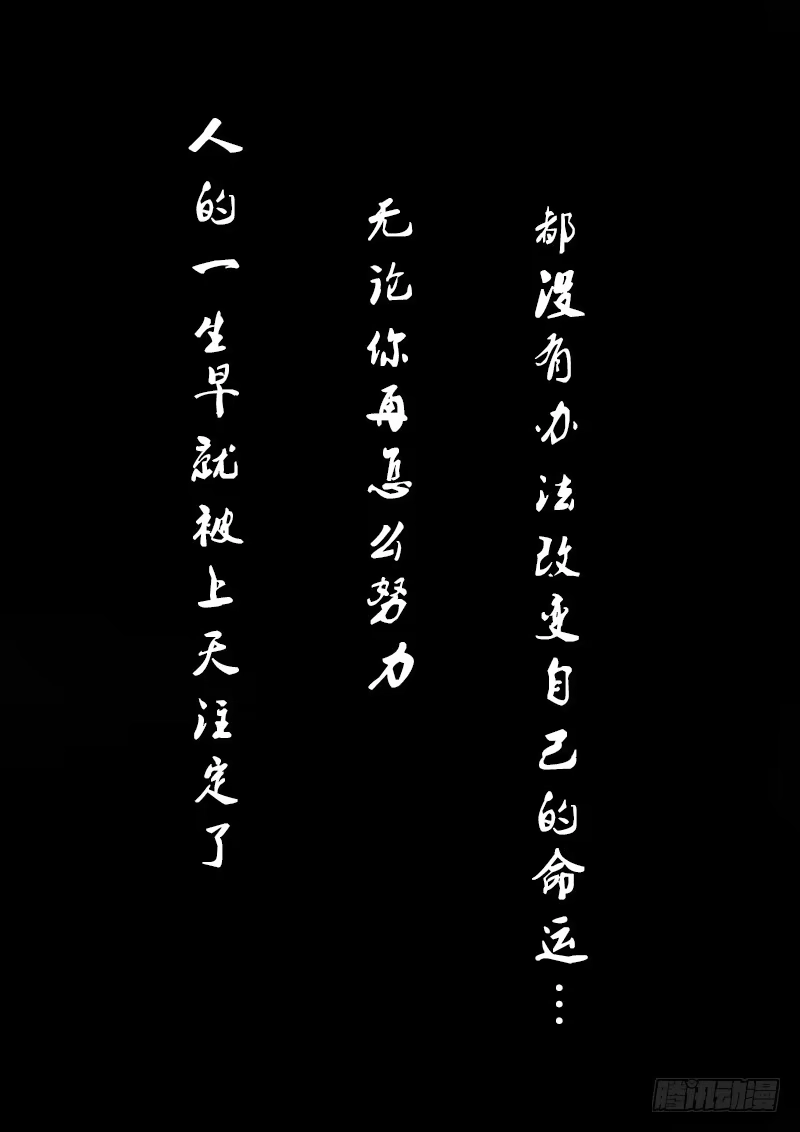 人的一生早就被上天注定了
无论你再怎么努力
都没有办法改变自己的命运…
腾讯动漫